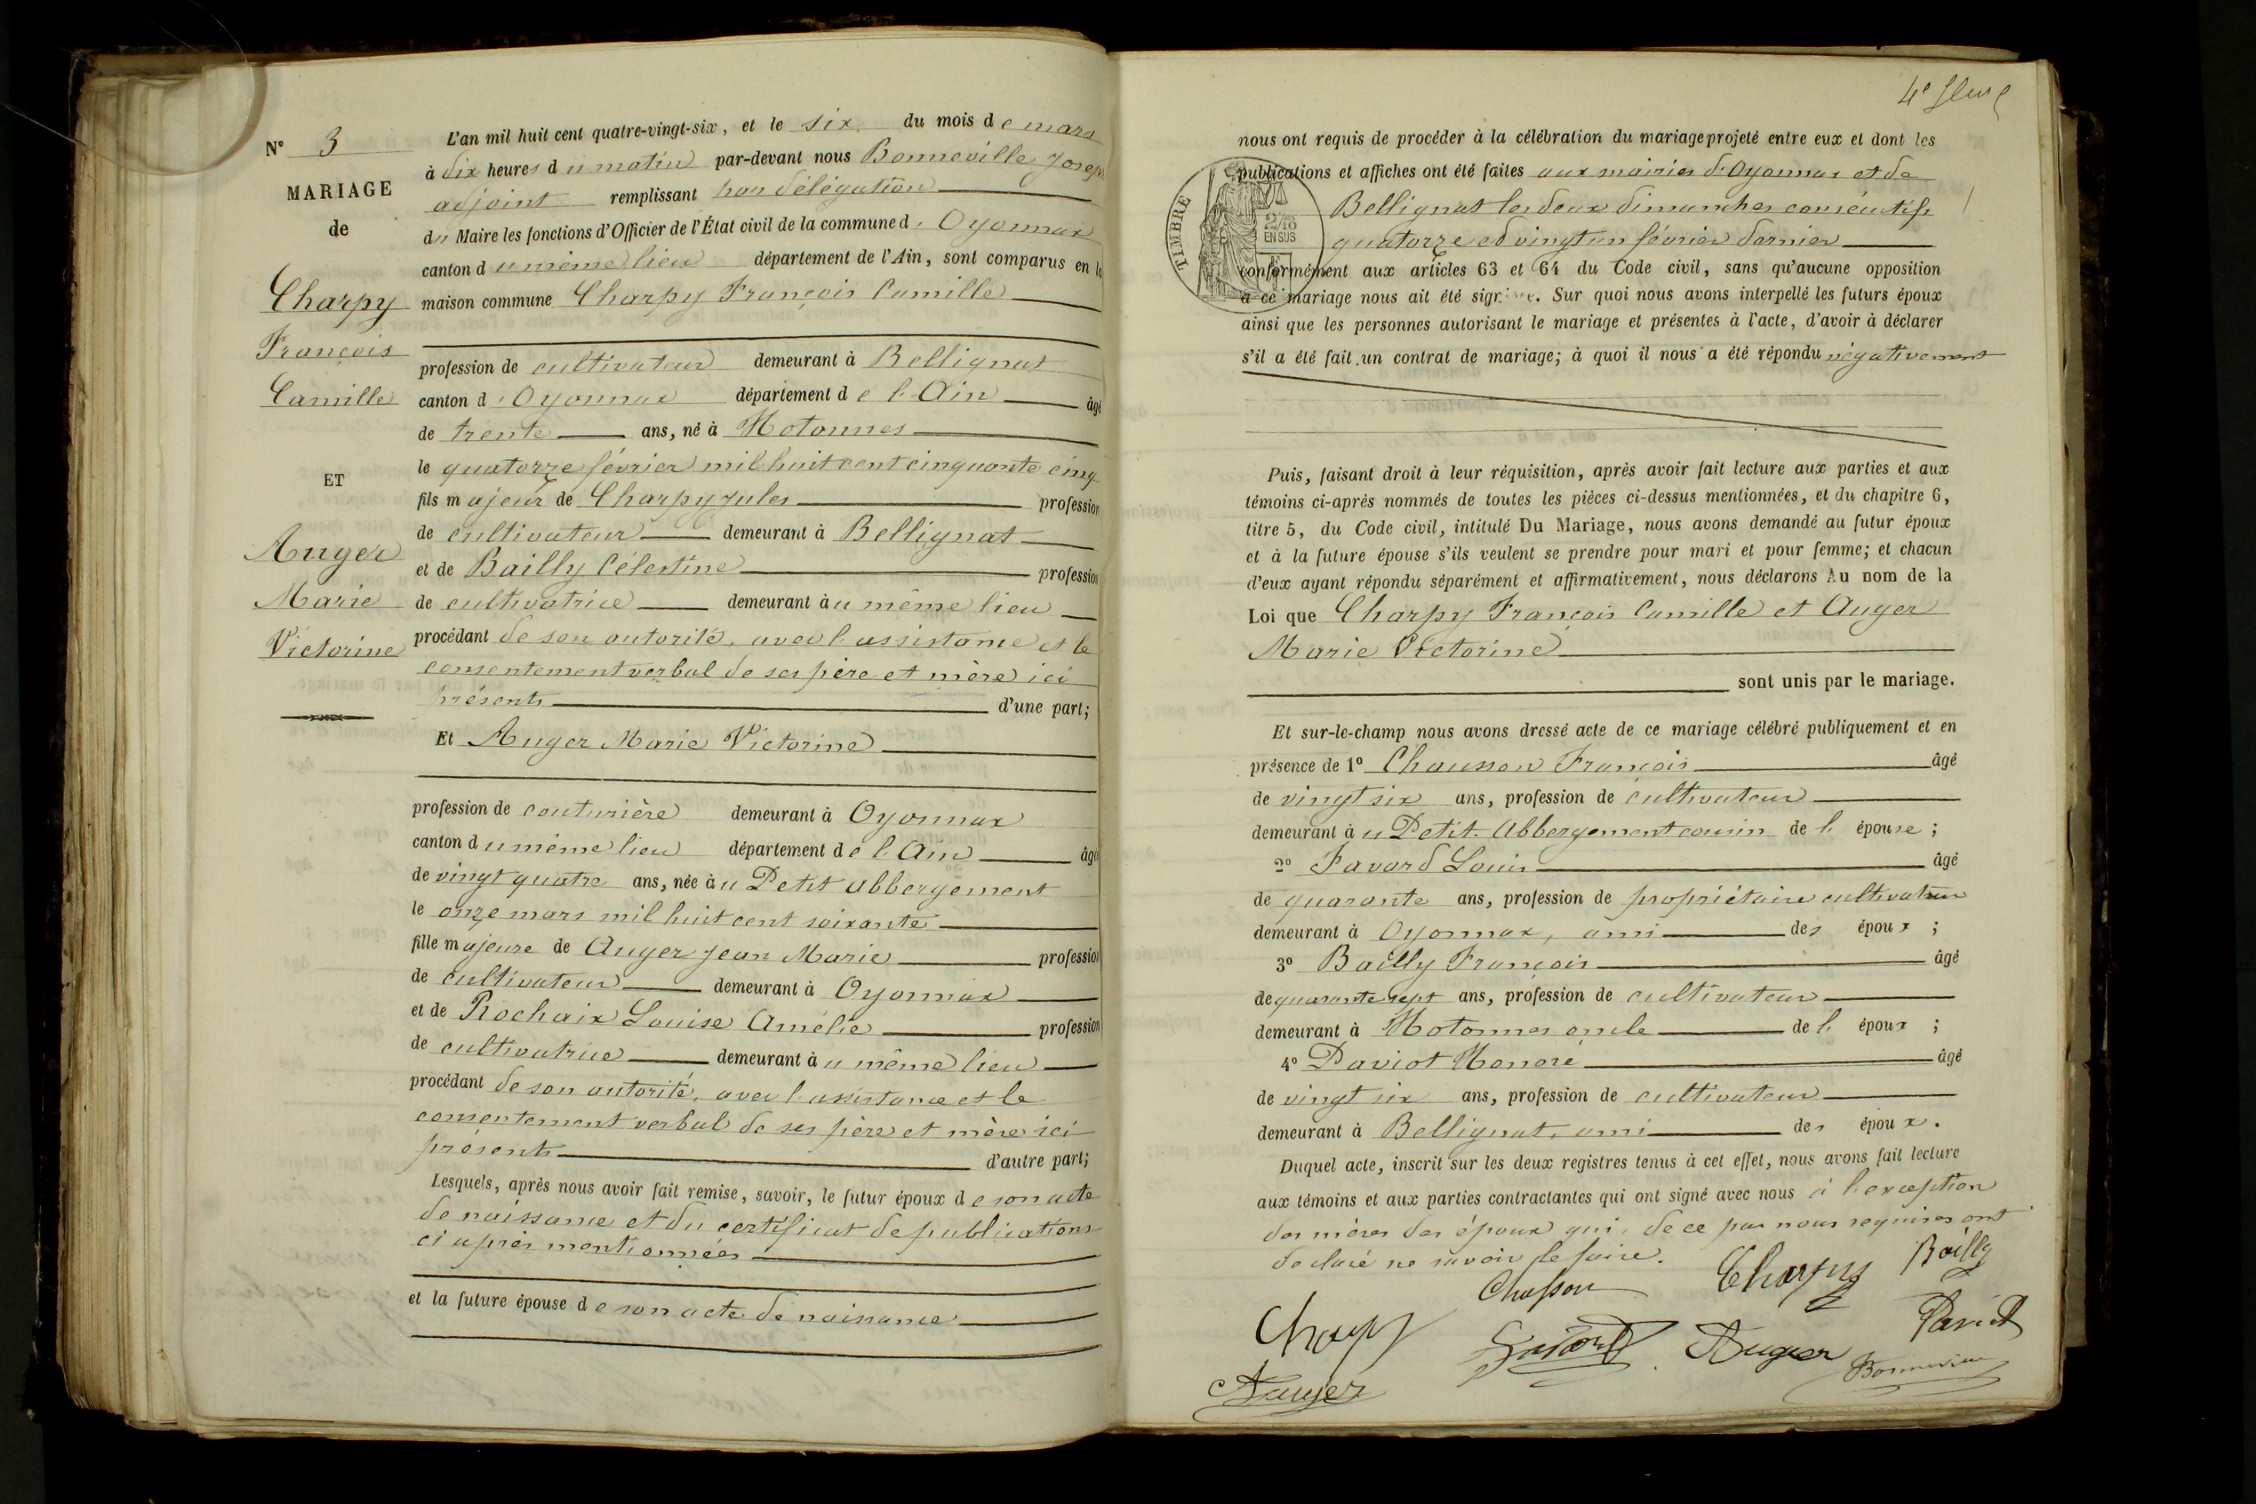 N° 3
MARIAGE
de
Charpy
François
Camille
ET
Auger
Marie
Victorine
L'an mil huit cent quatre-vingt-six, et le six du mois de mars
à dix heures du matin par-devant nous Bonneville Joseph
adjoint remplissant par délégation
du Maire les fonctions d'Officier de l'État civil de la commune d'Oyonnax
canton du même lieu département de l'Ain, sont comparus en la
maison commune Charpy François Camille
profession de cultivateur demeurant à Bellignat
canton d'Oyonnax département de l'Ain âgé
de trente ans, né à Hotonnes
le quatorze février mil huit cent cinquante cinq
fils majeur de Charpy Jules profession
de cultivateur demeurant à Bellignat
et de Bailly Célestine profession
de cultivatrice demeurant au même lieu
procédant de son autorité, avec l'assistance et le
consentement verbal de ses père et mère ici
présents d'une part;
Et Auger Marie Victorine
profession de couturière demeurant à Oyonnax
canton du même lieu département de l'Ain âgé
de vingt quatre ans, née au Petit Abbergement
le onze mars mil huit cent soixante
fille majeure de Auger Jean Marie profession
de cultivateur demeurant à Oyonnax
et de Rochaix Louise Amélie profession
de cultivatrice demeurant au même lieu
procédant de son autorité, avec l'assistance et le
consentement verbal de ses père et mère ici
présents d'autre part;
Lesquels, après nous avoir fait remise, savoir, le futur époux de son acte
de naissance et du certificat de publications
ci après mentionnées
et la future épouse de son acte de naissance
nous ont requis de procéder à la célébration du mariage projeté entre eux et dont les
publications et affiches ont été faites aux mairies d'Oyonnax et de
Bellignat les deux dimanches consécutifs
quatorze et vingt un février dernier
conformément aux articles 63 et 64 du Code civil, sans qu'aucune opposition
à ce mariage nous ait été signifiée. Sur quoi nous avons interpellé les futurs époux
ainsi que les personnes autorisant le mariage et présentes à l'acte, d'avoir à déclarer
s'il a été fait un contrat de mariage; à quoi il nous a été répondu négativement
TIMBRE
2/10
EN SUS
Puis, faisant droit à leur réquisition, après avoir fait lecture aux parties et aux
témoins ci-après nommés de toutes les pièces ci-dessus mentionnées, et du chapitre 6,
titre 5, du Code civil, intitulé Du Mariage, nous avons demandé au futur époux
et à la future épouse s'ils veulent se prendre pour mari et pour femme; et chacun
d'eux ayant répondu séparément et affirmativement, nous déclarons Au nom de la
Loi que Charpy François Camille et Auger
Marie Victorine
sont unis par le mariage.
Et sur-le-champ nous avons dressé acte de ce mariage célébré publiquement et en
présence de 1° Chausson François âgé
de vingt six ans, profession de cultivateur
demeurant au Petit Abbergement cousin de l'épouse;
2° Favard Louis âgé
de quarante ans, profession de propriétaire cultivateur
demeurant à Oyonnax, ami des époux;
3° Bailly François âgé
de quarante sept ans, profession de cultivateur
demeurant à Hotonnes oncle de l'époux;
4° Daviot Honoré âgé
de vingt six ans, profession de cultivateur
demeurant à Bellignat, ami des époux.
Duquel acte, inscrit sur les deux registres tenus à cet effet, nous avons fait lecture
aux témoins et aux parties contractantes qui ont signé avec nous à l'exception
des mères des époux qui, de ce par nous requises ont
déclaré ne savoir le faire.
Charpy Bailly
Charpy
Auger
Auger
Bonneville